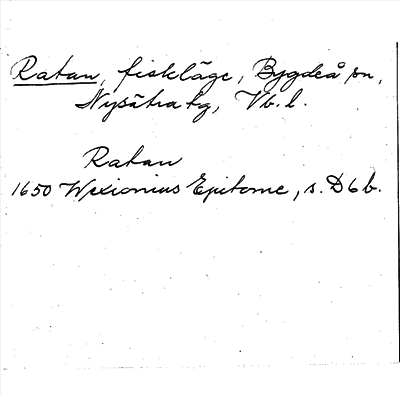 Ratan, fiskläge, Bygdeå sn,
Nysätra tg, Vb. l.
Ratan
1650 Wexionius Epitome, s. D6b.